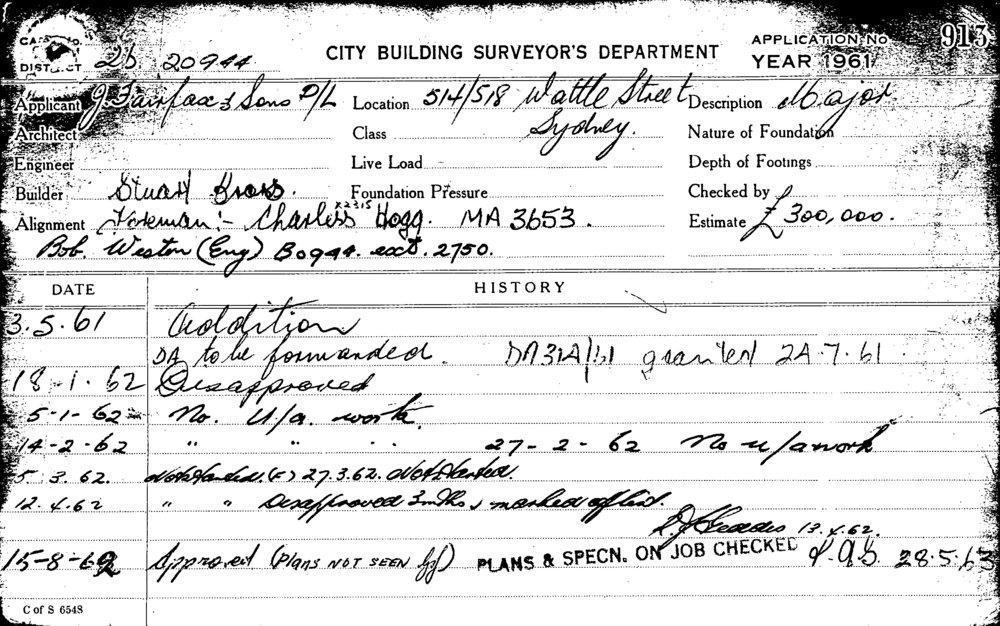 CITY BUILDING SURVEYOR'S DEPARTMENT
APPLICATION No 913
26 20944
YEAR 1961
Applicant J. Fairfax & Sons P/L Location 514/518 Wattle Street Description Major
Architect Class Sydney. Nature of Foundation
Engineer Live Load Depth of Footings
Builder Stuart Bros. Foundation Pressure Checked by
X2315
Alignment Foreman:- Charles Hogg. MA 3653. Estimate £300,000.
Bob. Weston (Eng) B0944. ext. 2750.
DATE HISTORY
3.5.61 Addition
DA to be forwarded. DA 31A/61 granted 24.7.61
18-1.62 Disapproved
5-1-62 No. u/a. work.
14-2-62 " " " 27-2-62 No u/a work
5.3.62. Not started. (F) 27.3.62. Not started.
12.4.62 " " Disapproved 3 mths, marked off
13.4.62.
15-8-62 Approved (Plans NOT SEEN) PLANS & SPECN. ON JOB CHECKED 28.5.63
C of S 654S